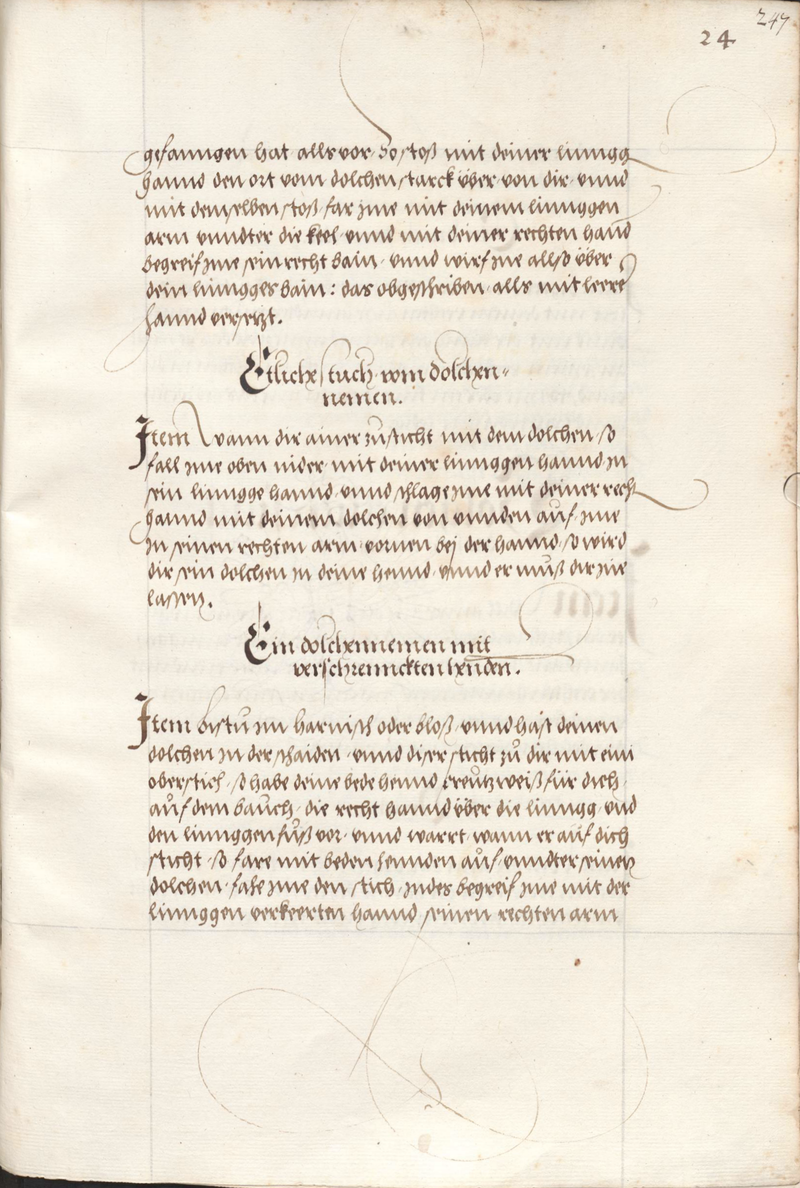 247
24
gefanngen hat alls vor, so stoß mit deiner linngg
hannd den ort vom dolchen starck über von dir, vnnd
mit demselben stoß far jme mit deinem linnggen
arm vnndter die keel, vnnd mit deiner rechten hand
begreif jme sein recht bain, vnnd wirf jme allso über
dein linngges bain: das obgeschriben, alls mit leere
hannd versetzt.
Etliche stuckh vom dolchen-
nemen.
Item wann dir ainer zůsticht mit dem dolchen, so
fall jme oben nider, mit deiner linnggen hannd jn
sein lingge hannd, vnnd schlag jme mit deiner recht
hannd mit deinem dolchen von vnnden auf, jme
jn seinen rechten arm, vornen bej der hannd, so wird
dir sein dolchen jn deine hennd, vnnd er můß dir jne
lassen.
Ein dolchennemen mit
verschrennckten henden.
Item bistu jm harnisch oder bloß, vnnd hast deinen
dolchen jn der schaiden, vnnd diser sticht zů dir mit eim
oberstich, so habe deine bede hennd creutzweiß für dich,
auf dem bauch, die recht hannd über die linngg, vnd
den linnggen fůß vor, vnnd warrt wann er auf dich
sticht, so fare mit beden hennden auf, vnndter seinen
dolchen, fahe jme den stich, jndes begreif jme mit der
linnggen verkeerten hannd, seinen rechten arm